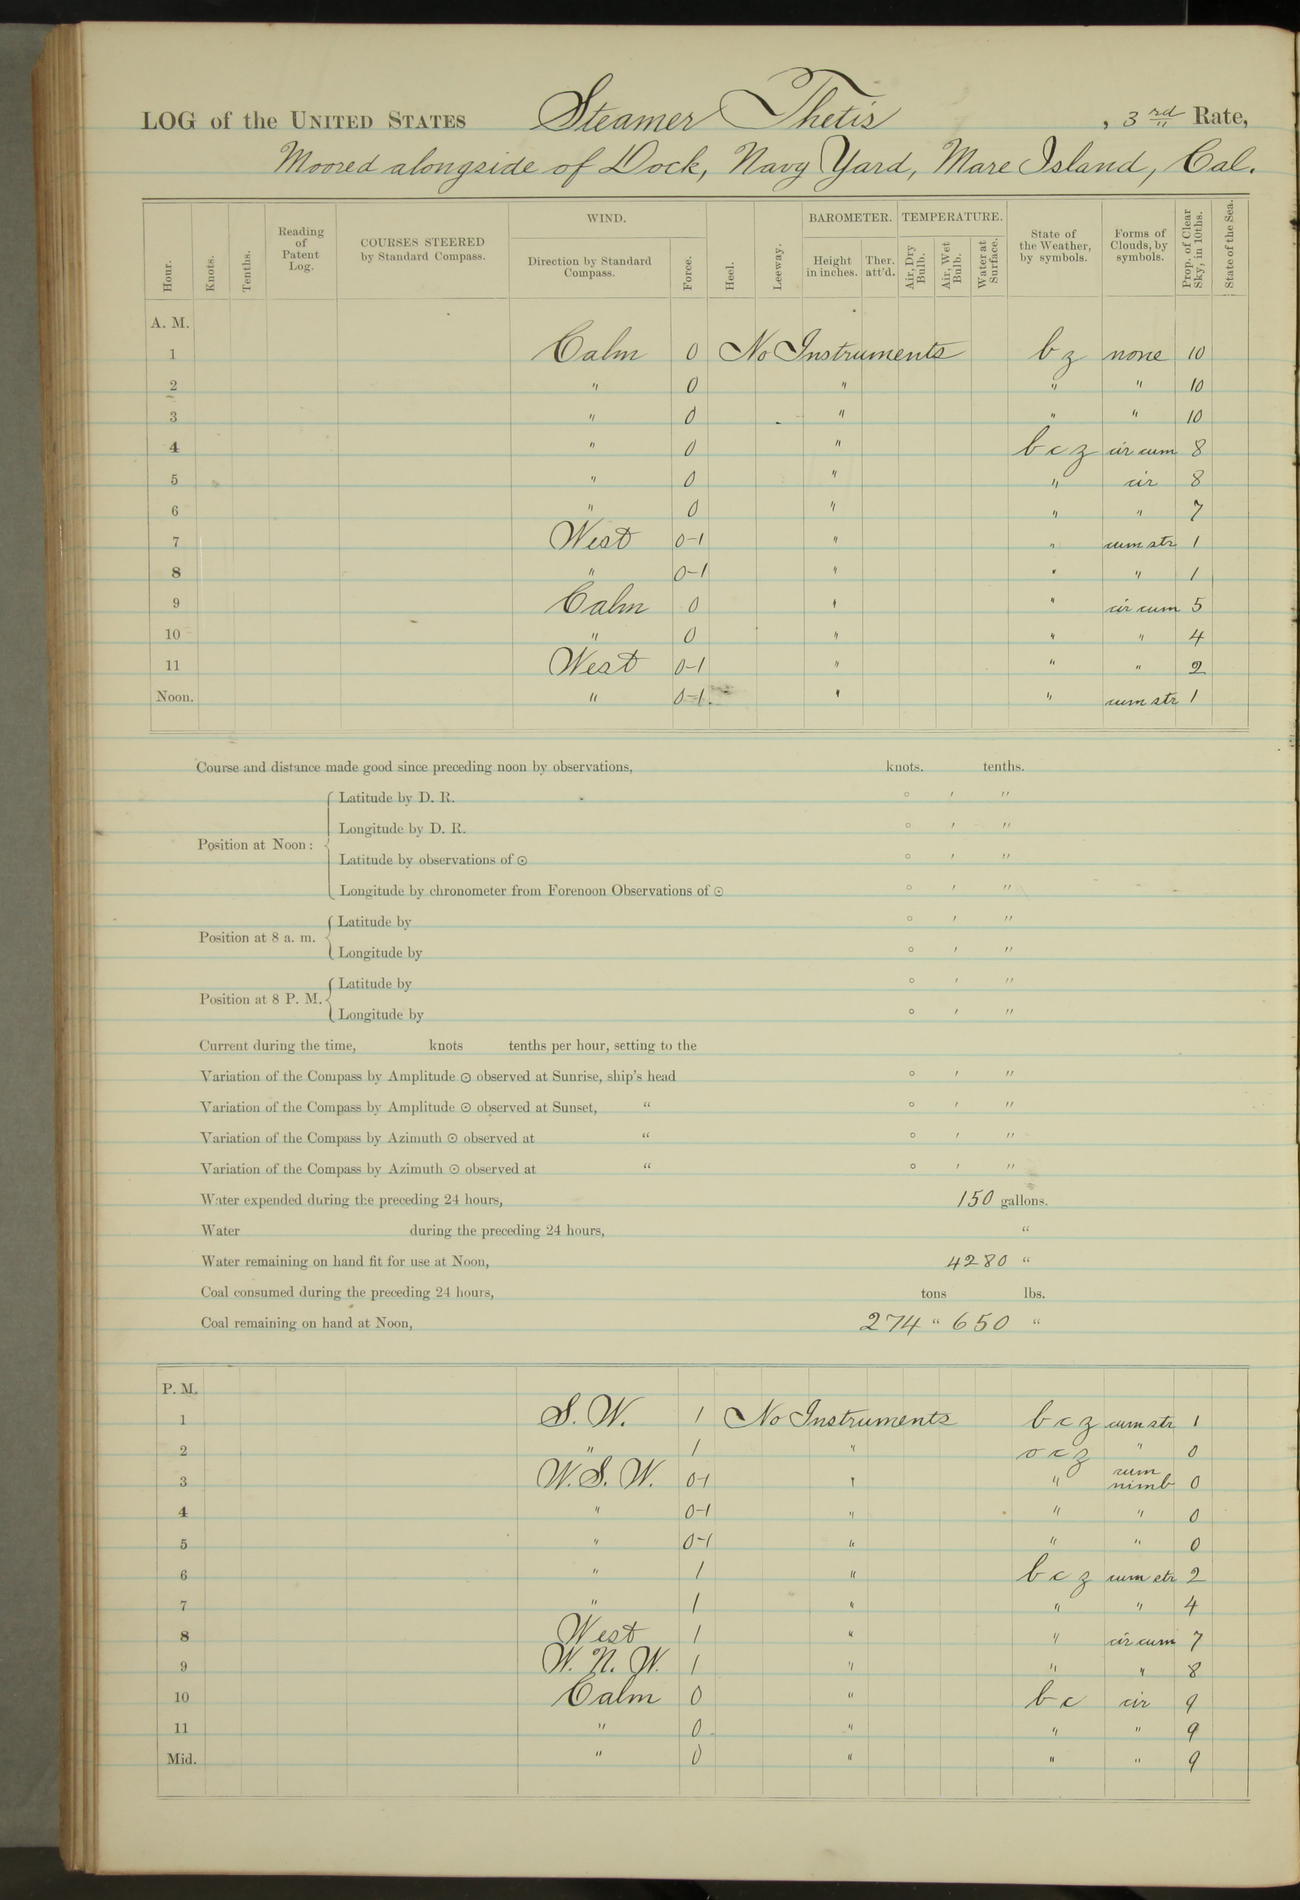 LOG of the UNITED STATES Steamer Thetis, 3rd Rate,
Moored alongside of Dock, Navy Yard, Mare Island, Cal.
WIND. BAROMETER. TEMPERATURE.
Hour. Knots. Tenths. Reading of Patent Log. COURSES STEERED by Standard Compass. Direction by Standard Compass. Force. Heel. Leeway. Height in inches. Ther. att'd. Air, Dry Bulb. Air, Wet Bulb. Water at Surface. State of the Weather, by symbols. Forms of Clouds, by symbols. Prop. of Clear Sky, in 10ths. State of the Sea.
A. M.
1 Calm 0 No Instruments b z none 10
2 " 0 " " " 10
3 " 0 " " " 10
4 " 0 " b c z cir cum 8
5 " 0 " " cir 8
6 " 0 " " " 7
7 West 0-1 " " cum str 1
8 " 0-1 " " " 1
9 Calm 0 " " cir cum 5
10 " 0 " " " 4
11 West 0-1 " " " 2
Noon. " 0-1 " " cum str 1
Course and distance made good since preceding noon by observations, knots. tenths.
Latitude by D. R. ° ′ ″
Longitude by D. R. ° ′ ″
Position at Noon:
Latitude by observations of ⊙ ° ′ ″
Longitude by chronometer from Forenoon Observations of ⊙ ° ′ ″
Latitude by ° ′ ″
Position at 8 a. m.
Longitude by ° ′ ″
Latitude by ° ′ ″
Position at 8 P. M.
Longitude by ° ′ ″
Current during the time, knots tenths per hour, setting to the
Variation of the Compass by Amplitude ⊙ observed at Sunrise, ship's head ° ′ ″
Variation of the Compass by Amplitude ⊙ observed at Sunset, " ° ′ ″
Variation of the Compass by Azimuth ⊙ observed at " ° ′ ″
Variation of the Compass by Azimuth ⊙ observed at " ° ′ ″
Water expended during the preceding 24 hours, 150 gallons.
Water during the preceding 24 hours, "
Water remaining on hand fit for use at Noon, 4280 "
Coal consumed during the preceding 24 hours, tons lbs.
Coal remaining on hand at Noon, 274 " 650 "
P. M.
1 S. W. 1 No Instruments b c z cum str 1
2 " 1 " o c z " 0
3 W. S. W. 0-1 " " cum nimb 0
4 " 0-1 " " " 0
5 " 0-1 " " " 0
6 " 1 " b c z cum str 2
7 " 1 " " " 4
8 West 1 " " cir cum 7
9 W. N. W. 1 " " " 8
10 Calm 0 " b c cir 9
11 " 0 " " " 9
Mid. " 0 " " " 9